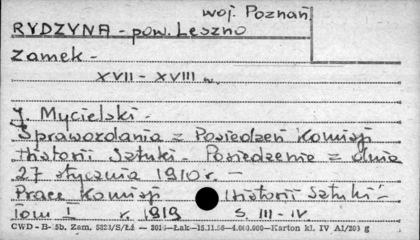 woj. Poznań
RYDZYNA - pow. Leszno
Zamek -
XVII - XVIII w.
J. Mycielski -
Sprawozdania z Posiedzeń Komisji
Historii Sztuki. Posiedzenie z dnia
27 stycznia 1910 r. -
Prace Komisji Historii Sztuki -
Tom I r. 1919 S. III - IV.
CWD - B- 5b. Zam. 5823/S/Łż — Łak—15.11.56—4.000.000—Karton kl. IV A1/200 g